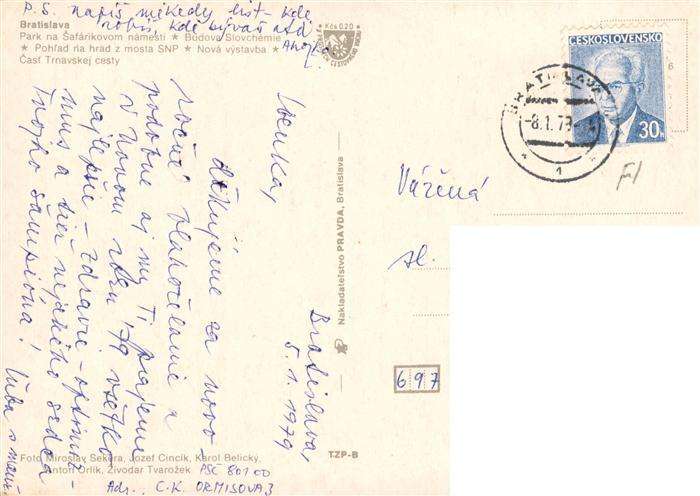 P.S. napíš niekedy list - kde
robíš, kde bývaš atď
Bratislava
Park na Šafárikovom námestí ★ Budova Slovchémie
★ Pohľad na hrad z mosta SNP ★ Nová výstavba ★
Časť Trnavskej cesty
Kčs 0,20
ČESKOSLOVENSKO
30h
BRATISLAVA
-8.1.79-
1
Vážená
sl.
697
Nakladateľstvo PRAVDA, Bratislava
TZP-B
Bratislava,
5.1.1979
Lenka,
ďakujeme za novo-
ročné blahoželanie a
podobne aj my Ti prajeme
v Novom roku '79 všetko
najlepšie - zdravie - optimiz-
mus a tiež nejakého
Tvojho šampióna!
Ľuba s
Foto Miroslav Sekera, Jozef Cincík, Karol Belický,
Anton Orlík, Živodar Tvarožek
PSČ 801 00
Adr., C.K. ORMISOVA 3